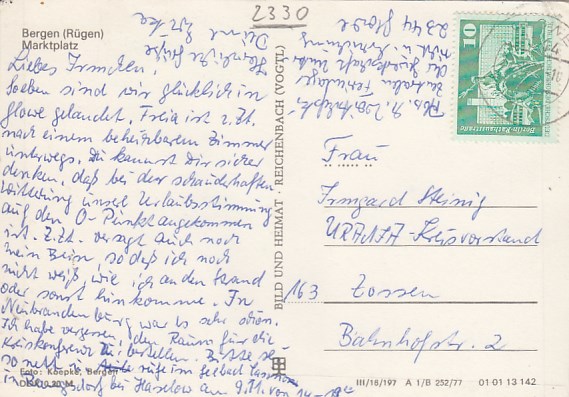 Bergen (Rügen)
Marktplatz
2330
Liebes Irmchen,
Soeben sind wir glücklich in
Glowe gelandet. Freia ist z.Zt.
nach einem beheizbarem Zimmer
unterwegs. Du kannst Dir sicher
denken, daß bei der schauderhaften
Witterung unsere Urlaubsstimmung
auf den O-Punkt angekommen
ist. Z.Zt. versagt auch noch
mein Bein, so daß ich noch
nicht weiß, wie ich an den Strand
oder sonst hinkomme. In
Neubrandenburg war es sehr schön.
Ich habe vergessen, den Raum für die
Kreiskonferenz zu bestellen. Bitte sei
so nett u. rufe im Seebad
in Rangsdorf bei Haselow am 9.11. von 14-18
Herzliche Grüße
Deine
2344 Glowe
BILD UND HEIMAT · REICHENBACH (VOGTL)
10
DDR
Berlin-Rathausstraße
Frau
Irmgard Steinig
URANIA-Kreisvorstand
163 Zossen
Bahnhofstr. 2
Foto: Koepke, Bergen
III/18/197 A 1/B 252/77 01 01 13 142